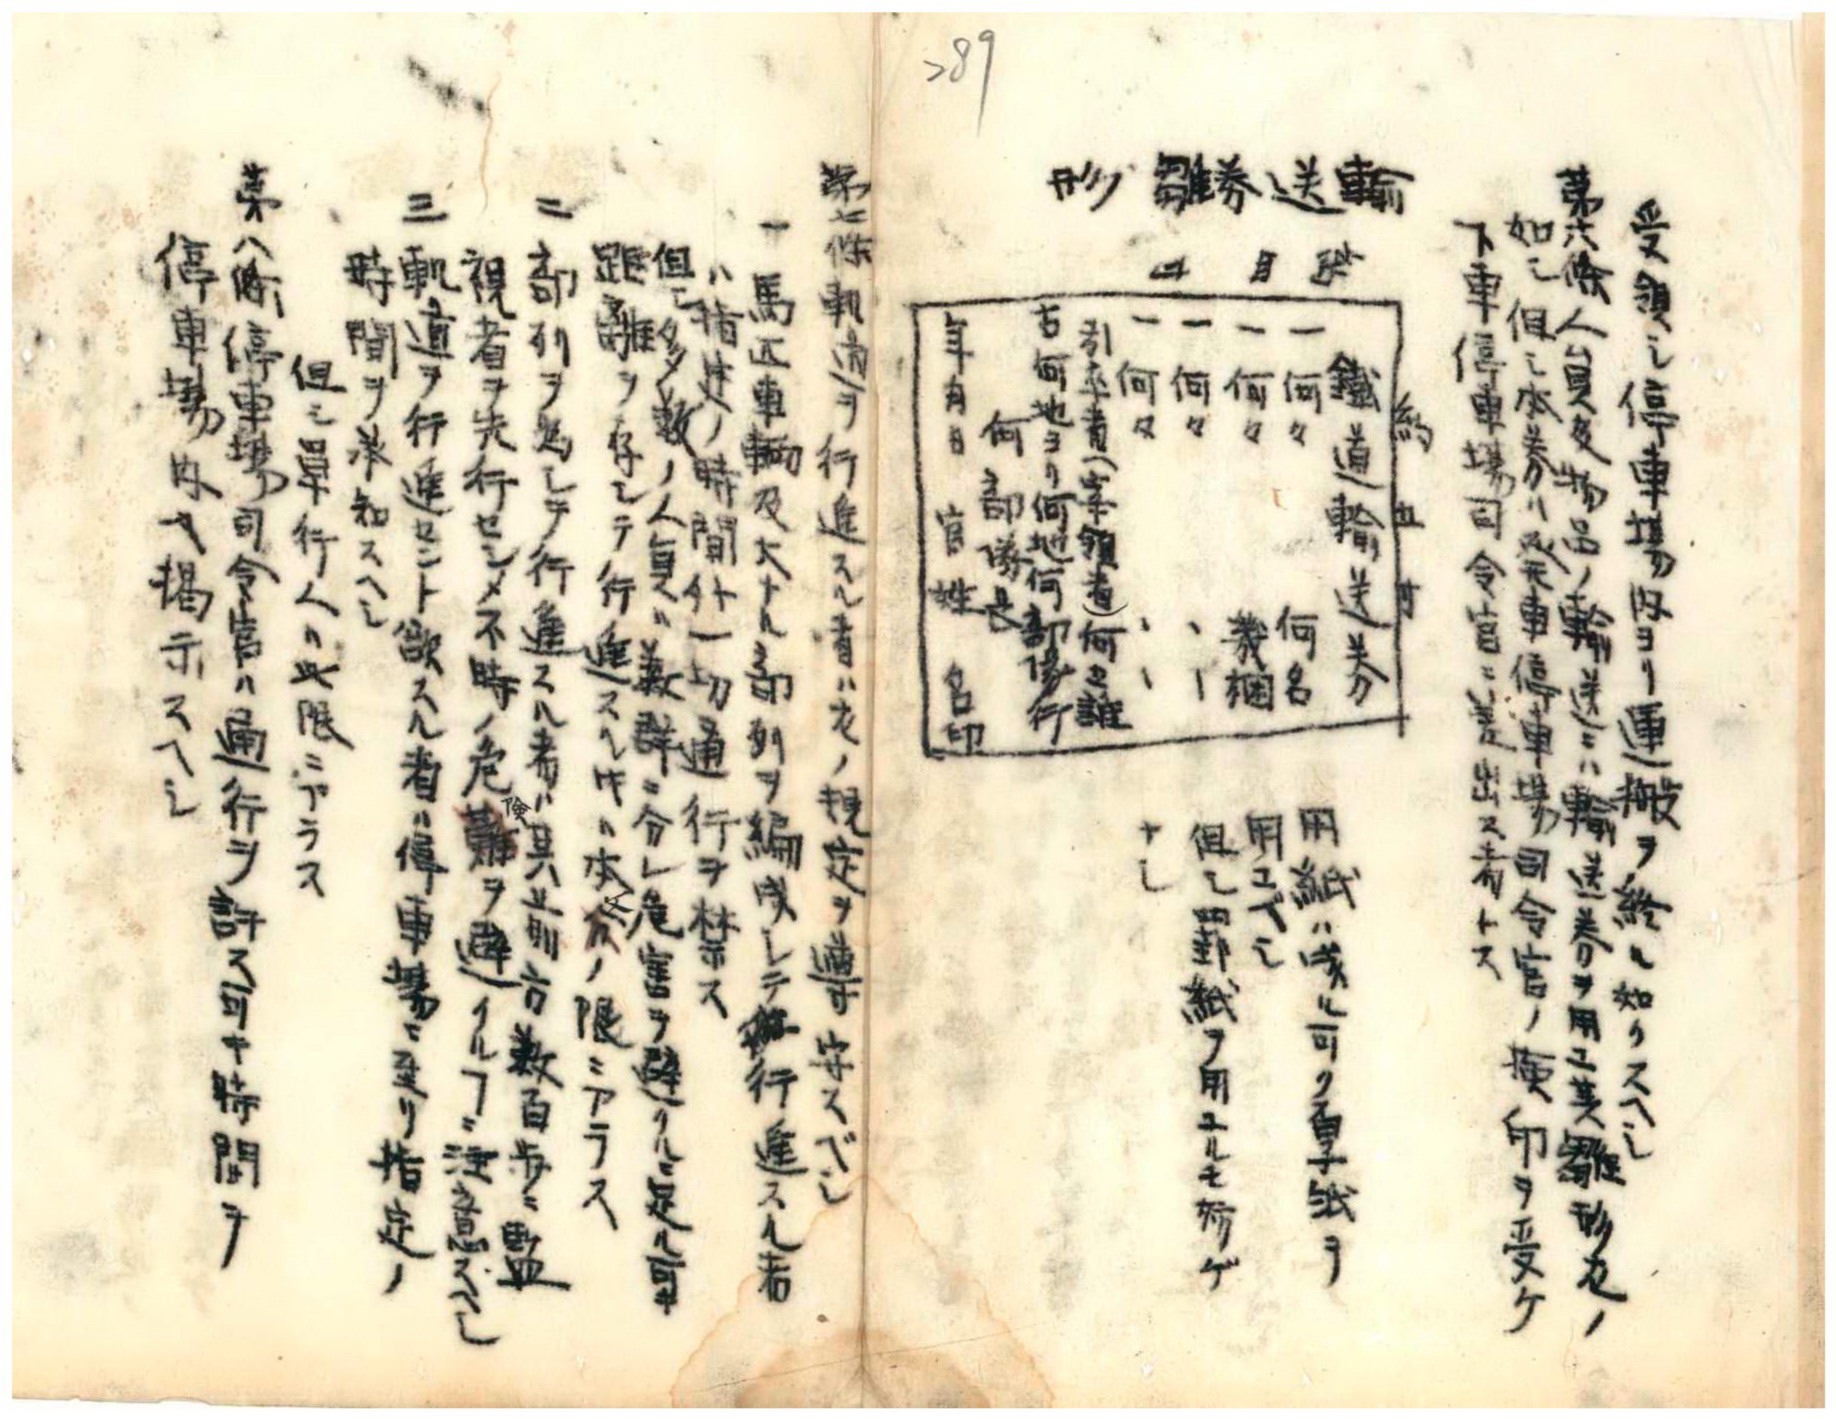 289
受領シ停車場内ヨリ運搬ヲ終ル如クスヘシ
第六條人員及物品ノ輸送ニハ輸送券ヲ用エ其雛形左ノ
如シ但シ本券ハ発車停車場司令官ノ検印ヲ受ケ
下車停車場司令官ニ差出ス者トス
輸送券雛形
約五寸
鐵道輸送券
一何々 何名
一何々 幾梱
一何々 、、
一何々 、、
引率者(宰領者)何々誰
右何地ヨリ何地何部隊行
何部隊長
年月日 官姓名印
用紙ハ成ル可ク厚紙ヲ
用エベシ
但シ罫紙ヲ用ユルモ妨ゲ
ナシ
第七條軌道ヲ行進スル者ハ左ノ規定ヲ遵守スベシ
一馬匹車輌及大ナル部列ヲ編成シテ行進スル者
ハ指定ノ時間外ハ一切通行ヲ禁ス
但シ多数ノ人員ハ数群ニ分レ危害ヲ避クルニ足ル可キ
距離ヲ存シテ行進スル片ハ本文ノ限ニアラス
二部列ヲ為シテ行進スル者ハ其部列前方数百歩ニ監
視者ヲ先行セシメ不時ノ危険ヲ避クルヿニ注意スヘシ
三軌道ヲ行進セント欲スル者ハ停車場ニ至リ指定ノ
時間ヲ承知スヘシ
但シ單行人ハ此限ニアラス
第八條停車場司令官ハ通行ヲ許ス可キ時間ヲ
停車場内ヘ掲示スヘシ